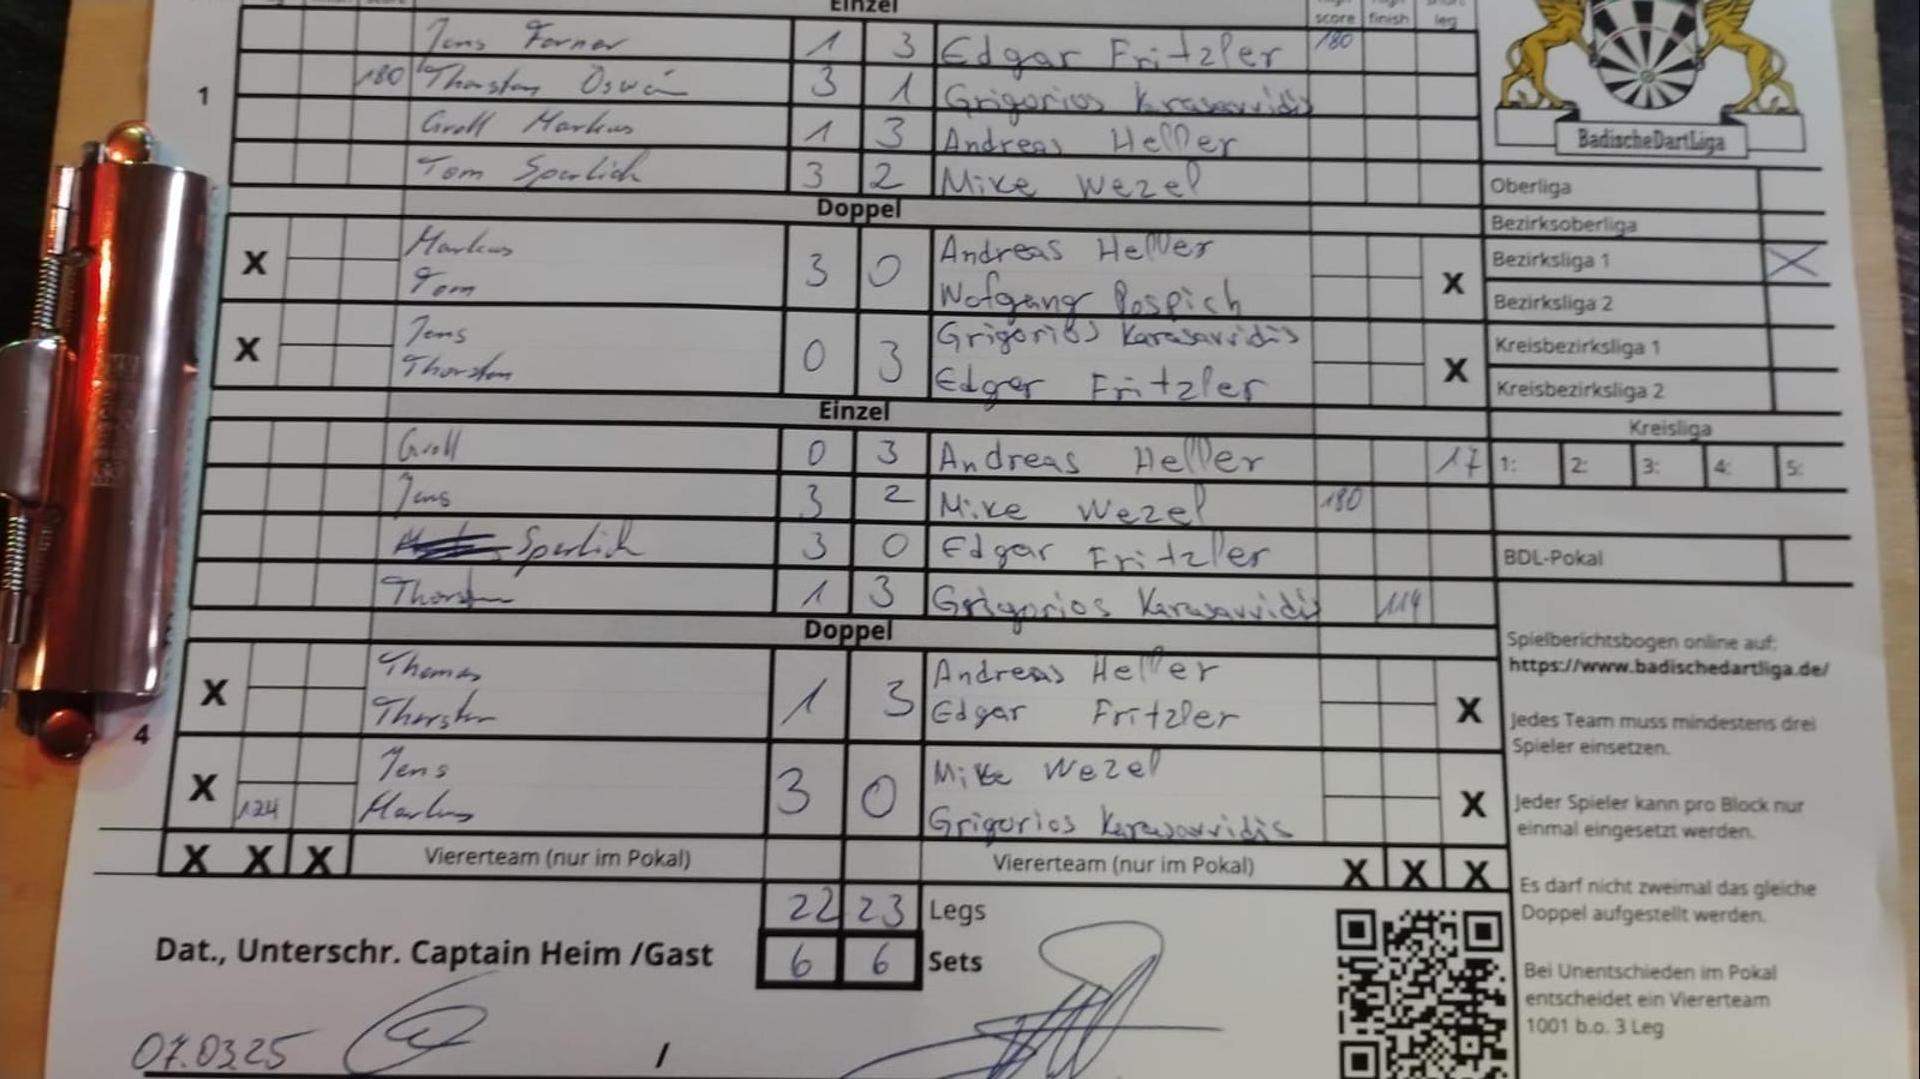 Einzel
score finish leg
Jens Forner 1 3 Edgar Fritzler 180
1
180 Thorsten 3 1 Grigorios Karasavvidis
Groll Markus 1 3 Andreas Heller
Tom Sperlich 3 2 Mike Wezel
Doppel
X Markus 3 0 Andreas Heller X
Tom Wofgang Pospich
X Jens 0 3 Grigorios Karasavvidis X
Thorsten Edgar Fritzler
Einzel
Groll 0 3 Andreas Heller 17
Jens 3 2 Mike Wezel 180
Sperlich 3 0 Edgar Fritzler
Thorsten 1 3 Grigorios Karasavvidis 114
Doppel
X Thomas 1 3 Andreas Heller X
Thorsten Edgar Fritzler
4
X Jens 3 0 Mike Wezel X
124 Markus Grigorios Karasavvidis
X X X Viererteam (nur im Pokal) Viererteam (nur im Pokal) X X X
22 23 Legs
6 6 Sets
Dat., Unterschr. Captain Heim /Gast
07.03.25 /
BadischeDartLiga
Oberliga
Bezirksoberliga
Bezirksliga 1 X
Bezirksliga 2
Kreisbezirksliga 1
Kreisbezirksliga 2
Kreisliga
1: 2: 3: 4: 5:
BDL-Pokal
Spielberichtsbogen online auf:
https://www.badischedartliga.de/
Jedes Team muss mindestens drei
Spieler einsetzen.
Jeder Spieler kann pro Block nur
einmal eingesetzt werden.
Es darf nicht zweimal das gleiche
Doppel aufgestellt werden.
Bei Unentschieden im Pokal
entscheidet ein Viererteam
1001 b.o. 3 Leg